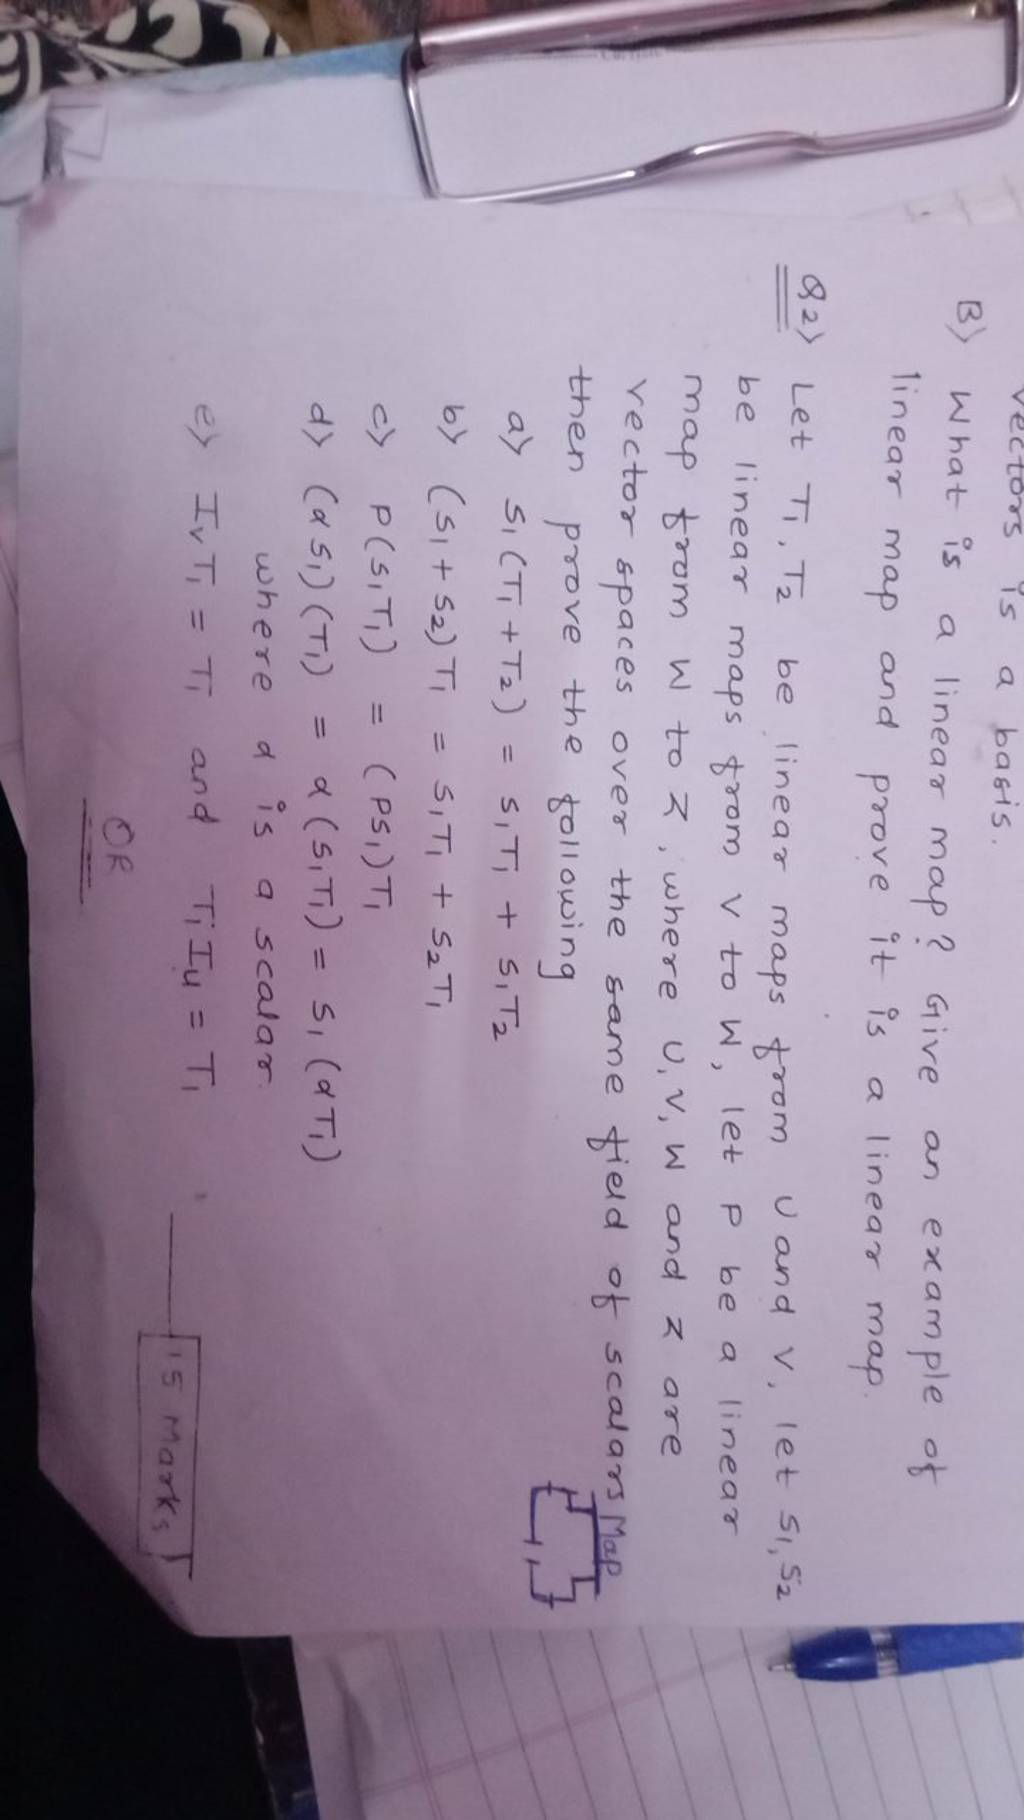 vectors is a basis.
B) What is a linear map? Give an example of
linear map and prove it is a linear map.
Q2) Let T1, T2 be linear maps from U and V, let S1, S2
be linear maps from V to W, let P be a linear
map from W to Z, where U, V, W and Z are
vector spaces over the same field of scalars Map
then prove the following
a) S1(T1+T2) = S1T1 + S1T2
b) (S1+S2)T1 = S1T1 + S2T1
c) P(S1T1) = (PS1)T1
d) (αS1)(T1) = α(S1T1) = S1(αT1)
where α is a scalar.
e) IvT1 = T1 and T1Iu = T1
15 Marks
OR